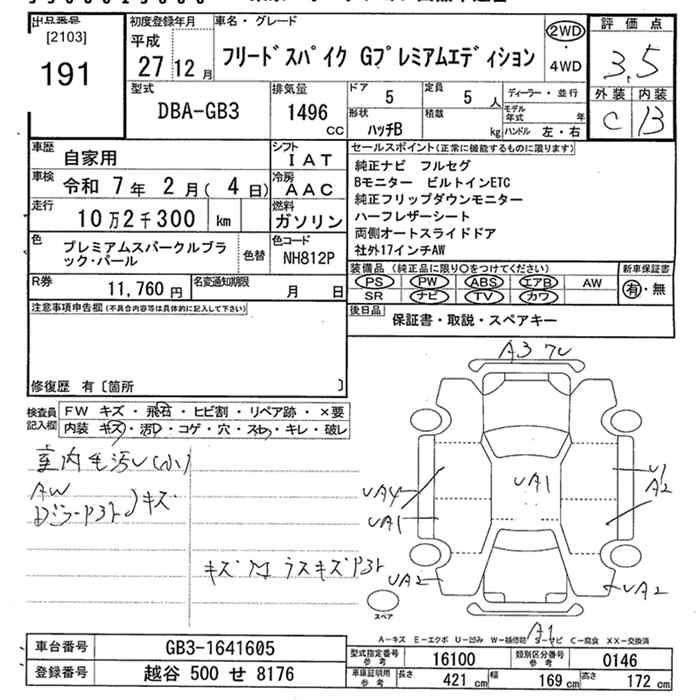 出品番号 [2103] 191
初度登録年月 平成 27年 12月
車名・グレード フリードスパイク Gプレミアムエディション
2WD ・ 4WD
評価点 3.5
外装 C 内装 B
型式 DBA-GB3
排気量 1496 CC
ドア 5 定員 5人
形状 ハッチB 積載 kg
ディーラー・並行
モデル年式 年
ハンドル 左・右
車歴 自家用
シフト IAT
車検 令和 7年 2月 ( 4日)
冷房 AAC
走行 10万2千300 km
燃料 ガソリン
色 プレミアムスパークルブラック・パール
色替
色コード NH812P
R券 11,760円
名変通知期限 月 日
セールスポイント(正常に機能するものに限ります)
純正ナビ フルセグ
Bモニター ビルトインETC
純正フリップダウンモニター
ハーフレザーシート
両側オートスライドドア
社外17インチAW
装備品 (純正品に限り○をつけてください)
PS PW ABS エアB AW
SR ナビ TV カワ
新車保証書 有・無
後日品 保証書・取説・スペアキー
注意事項申告欄(不具合内容等は具体的に記入して下さい)
修復歴 有〔箇所 〕
検査員記入欄
FW キズ・飛石・ヒビ割・リペア跡・×要
内装 キズ・汚レ・コゲ・穴・スレ・キレ・破レ
室内毛汚レ(小)
AW
ドラーP31ト キズ
A3 フレ
UA1
UA4
UA1
UA2
U1
A2
UA2
A1
スペア
A-キズ E-エクボ U-凹み W-補修跡 S-サビ C-腐食 XX-交換済
車台番号 GB3-1641605
登録番号 越谷 500 せ 8176
型式指定番号 参考 16100
類別区分番号 参考 0146
車庫証明用 参考 長さ 421 cm 幅 169 cm 高さ 172 cm